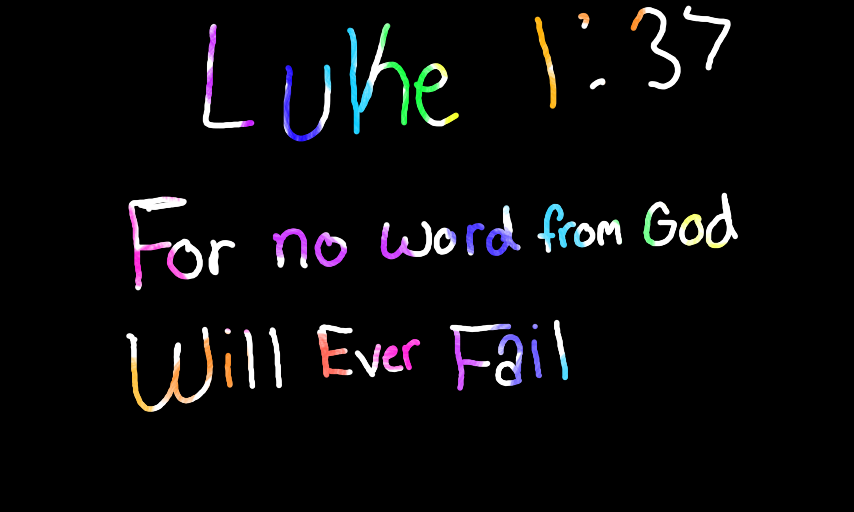 Luke 1:37
For no word from God
Will Ever Fail